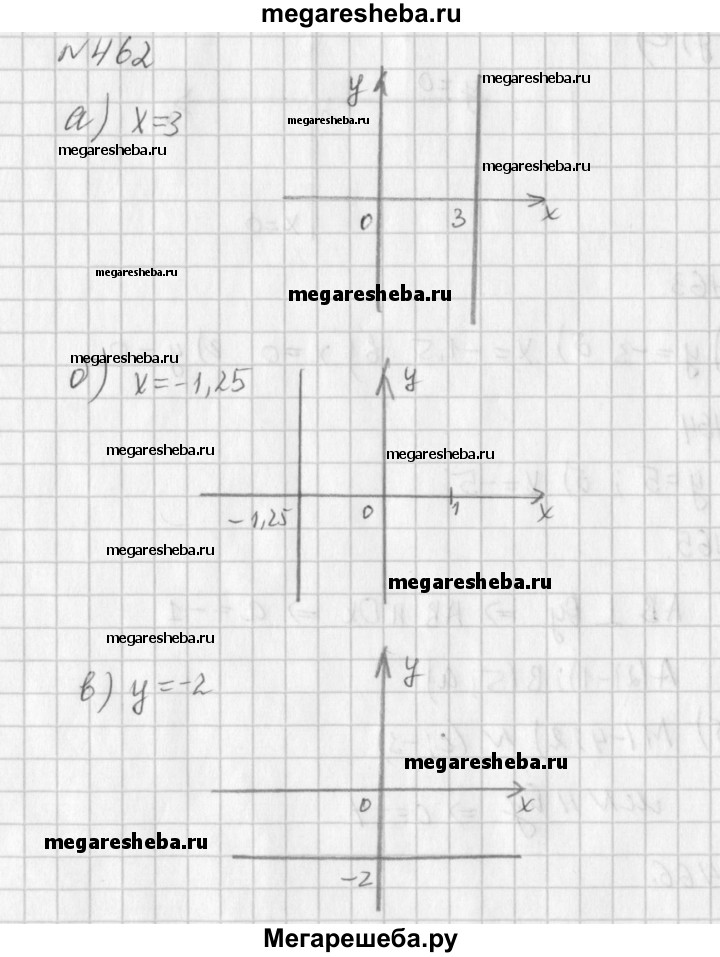 megaresheba.ru
№462
а) x=3
y
0
3
x
megaresheba.ru
megaresheba.ru
megaresheba.ru
megaresheba.ru
megaresheba.ru
megaresheba.ru
megaresheba.ru
б) x=-1,25
y
-1,25
0
1
x
megaresheba.ru
megaresheba.ru
megaresheba.ru
megaresheba.ru
megaresheba.ru
в) y=-2
y
0
x
-2
megaresheba.ru
megaresheba.ru
Мегарешеба.ру